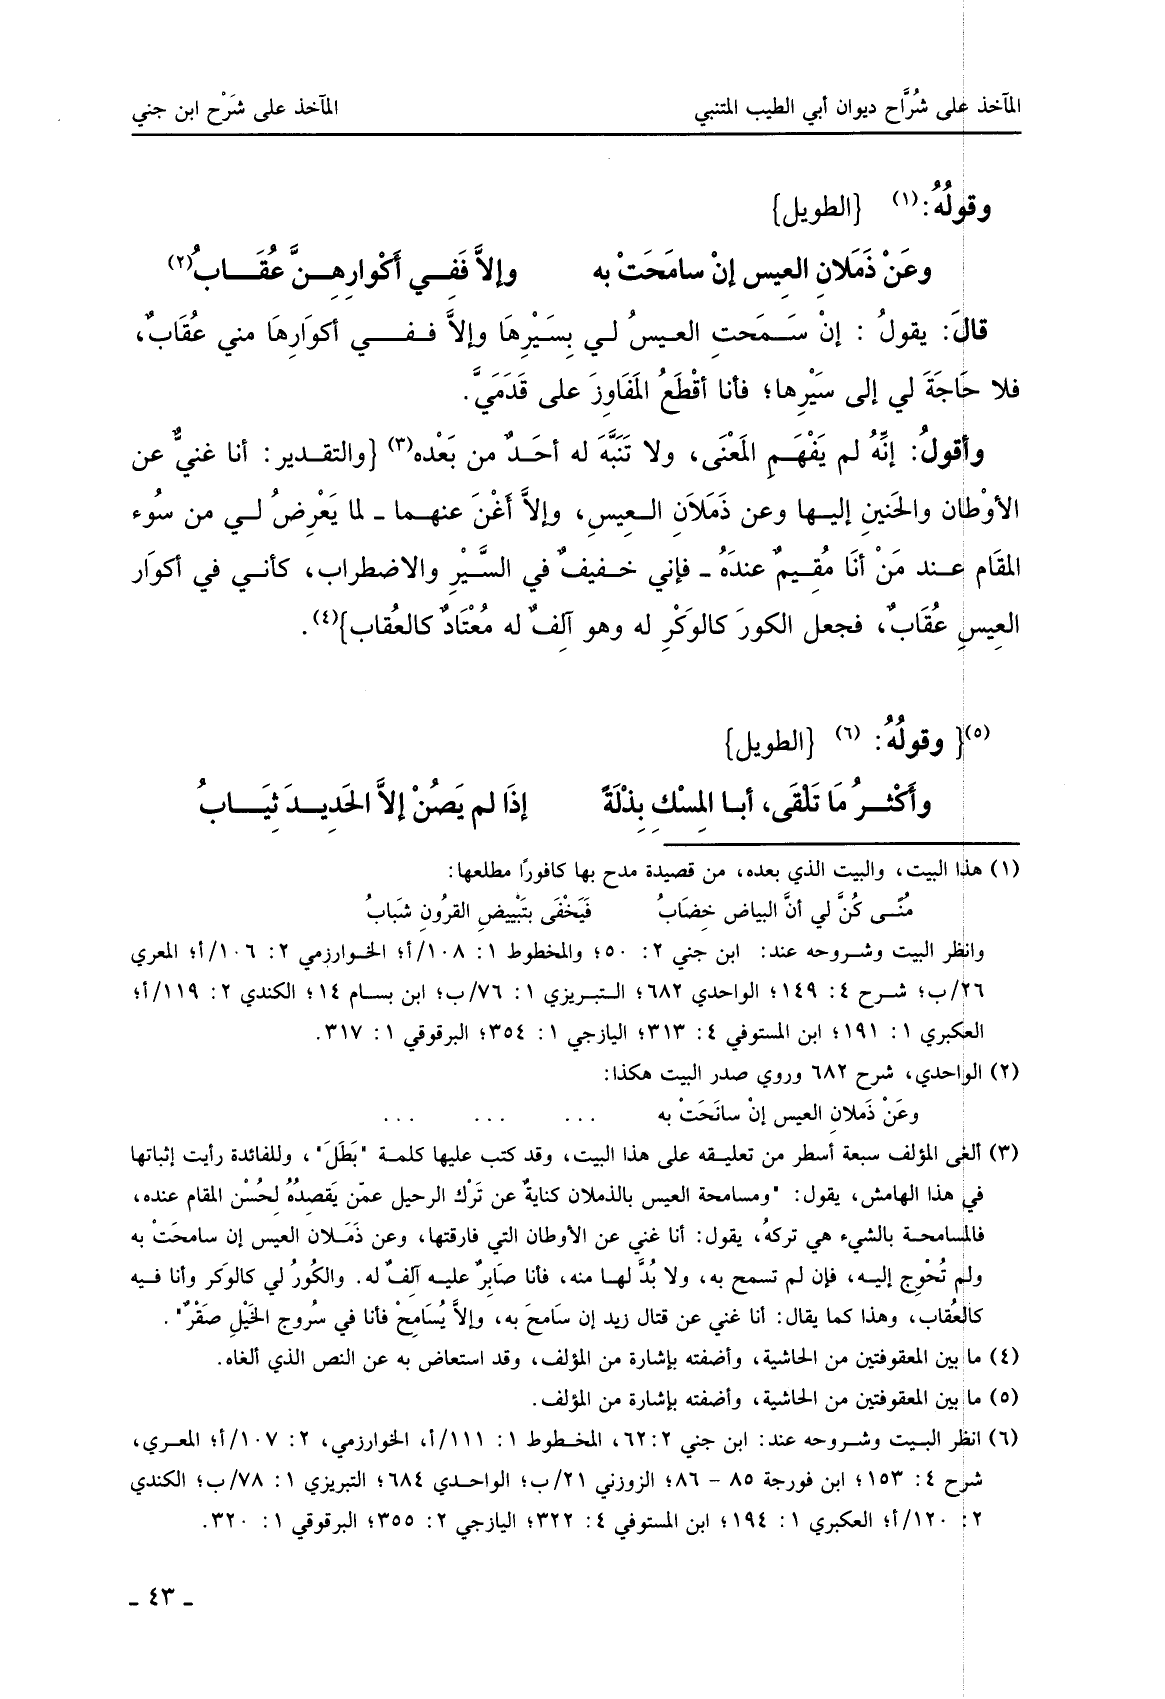 المآخذ على شُرَّاح ديوان أبي الطيب المتنبي المآخذ على شَرْح ابن جني
وقولُهُ:(١) {الطويل}
وعَنْ ذَمَلانِ العيسِ إنْ سامَحَتْ به وإلاَّ فَفِي أَكْوارِهِنَّ عُقَابُ(٢)
قالَ: يقولُ : إنْ سَمَحتِ العيسُ لي بِسَيْرِهَا وإلاَّ ففي أكوَارِهَا مني عُقَابٌ،
فلا حَاجَةَ لي إلى سَيْرِها؛ فأنا أقْطَعُ المَفَاوِزَ على قَدَمَيَّ.
وأقولُ: إنَّهُ لم يَفْهَمِ المَعْنَى، ولا تَنَبَّهَ له أحَدٌ من بَعْده(٣) {والتقدير: أنا غنيٌّ عن
الأوْطان والحَنينِ إليها وعن ذَمَلاَنِ العِيسِ، وإلاَّ أَغْنَ عنهما ـ لما يَعْرِضُ لي من سُوء
المقَام عند مَنْ أنَا مُقِيمٌ عندَهُ ـ فإني خفيفٌ في السَّيْرِ والاضطراب، كأني في أكوَار
العِيسِ عُقَابٌ، فجعل الكورَ كالوَكْرِ له وهو آلِفٌ له مُعْتَادٌ كالعُقاب}(٤).
(٥){ وقولُهُ: (٦) {الطويل}
وأَكْثرُ مَا تَلْقَى، أبا المِسْكِ بِذْلَةً إذَا لم يَصُنْ إلاَّ الحَدِيدَ ثِيَابُ
(١) هذا البيت، والبيت الذي بعده، من قصيدة مدح بها كافورًا مطلعها:
مُنًى كُنَّ لي أنَّ البياض خضَابُ فَيَخْفَى بتَبْييضِ القرُونِ شبَابُ
وانظر البيت وشروحه عند: ابن جني ٢: ٥٠؛ والمخطوط ١: ١٠٨/أ؛ الخوارزمي ٢: ١٠٦/أ؛ المعري
٢٦/ب؛ شرح ٤: ١٤٩؛ الواحدي ٦٨٢؛ التبريزي ١: ٧٦/ب؛ ابن بسام ١٤؛ الكندي ٢: ١١٩/أ؛
العكبري ١: ١٩١؛ ابن المستوفي ٤: ٣١٣؛ اليازجي ١: ٣٥٤؛ البرقوقي ١: ٣١٧.
(٢) الواحدي، شرح ٦٨٢ وروي صدر البيت هكذا:
وعَنْ ذَملان العيس إنْ سانَحَتْ به ... ... ...
(٣) ألغى المؤلف سبعة أسطر من تعليقه على هذا البيت، وقد كتب عليها كلمة "بَطَلَ" ، وللفائدة رأيت إثباتها
في هذا الهامش، يقول: "ومسامحة العيس بالذملان كنايةٌ عن تَرْك الرحيل عمّن يَقصدُهُ لحُسْن المقام عنده،
فالمسامحة بالشيء هي تركهُ، يقول: أنا غني عن الأوطان التي فارقتها، وعن ذَمَلان العيس إن سامحَتْ به
ولم تُحْوِج إليه، فإن لم تسمح به، ولا بُدَّ لها منه، فأنا صَابرٌ عليه آلفٌ له. والكُورُ لي كالوَكر وأنا فيه
كالعُقاب، وهذا كما يقال: أنا غني عن قتال زيد إن سَامحَ به، وإلاَّ يُسَامِحْ فأنا في سُروجِ الخَيْلِ صَقْرٌ" .
(٤) ما بين المعقوفتين من الحاشية، وأضفته بإشارة من المؤلف، وقد استعاض به عن النص الذي ألغاه.
(٥) ما بين المعقوفتين من الحاشية، وأضفته بإشارة من المؤلف.
(٦) انظر البيت وشروحه عند: ابن جني ٢: ٦٢، المخطوط ١: ١١١/أ، الخوارزمي، ٢: ١٠٧/أ؛ المعري،
شرح ٤: ١٥٣؛ ابن فورجة ٨٥ – ٨٦؛ الزوزني ٢١/ب؛ الواحدي ٦٨٤؛ التبريزي ١: ٧٨/ب؛ الكندي
٢: ١٢٠/أ؛ العكبري ١: ١٩٤؛ ابن المستوفي ٤: ٣٢٢؛ اليازجي ٢: ٣٥٥؛ البرقوقي ١: ٣٢٠.
ـ ٤٣ ـ